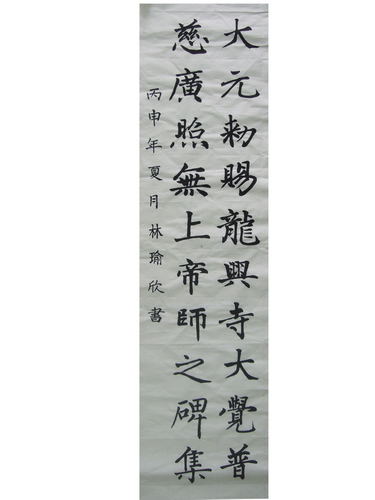 大元勑賜龍興寺大覺普
慈廣照無上帝師之碑集
丙申年夏月林瑜欣書